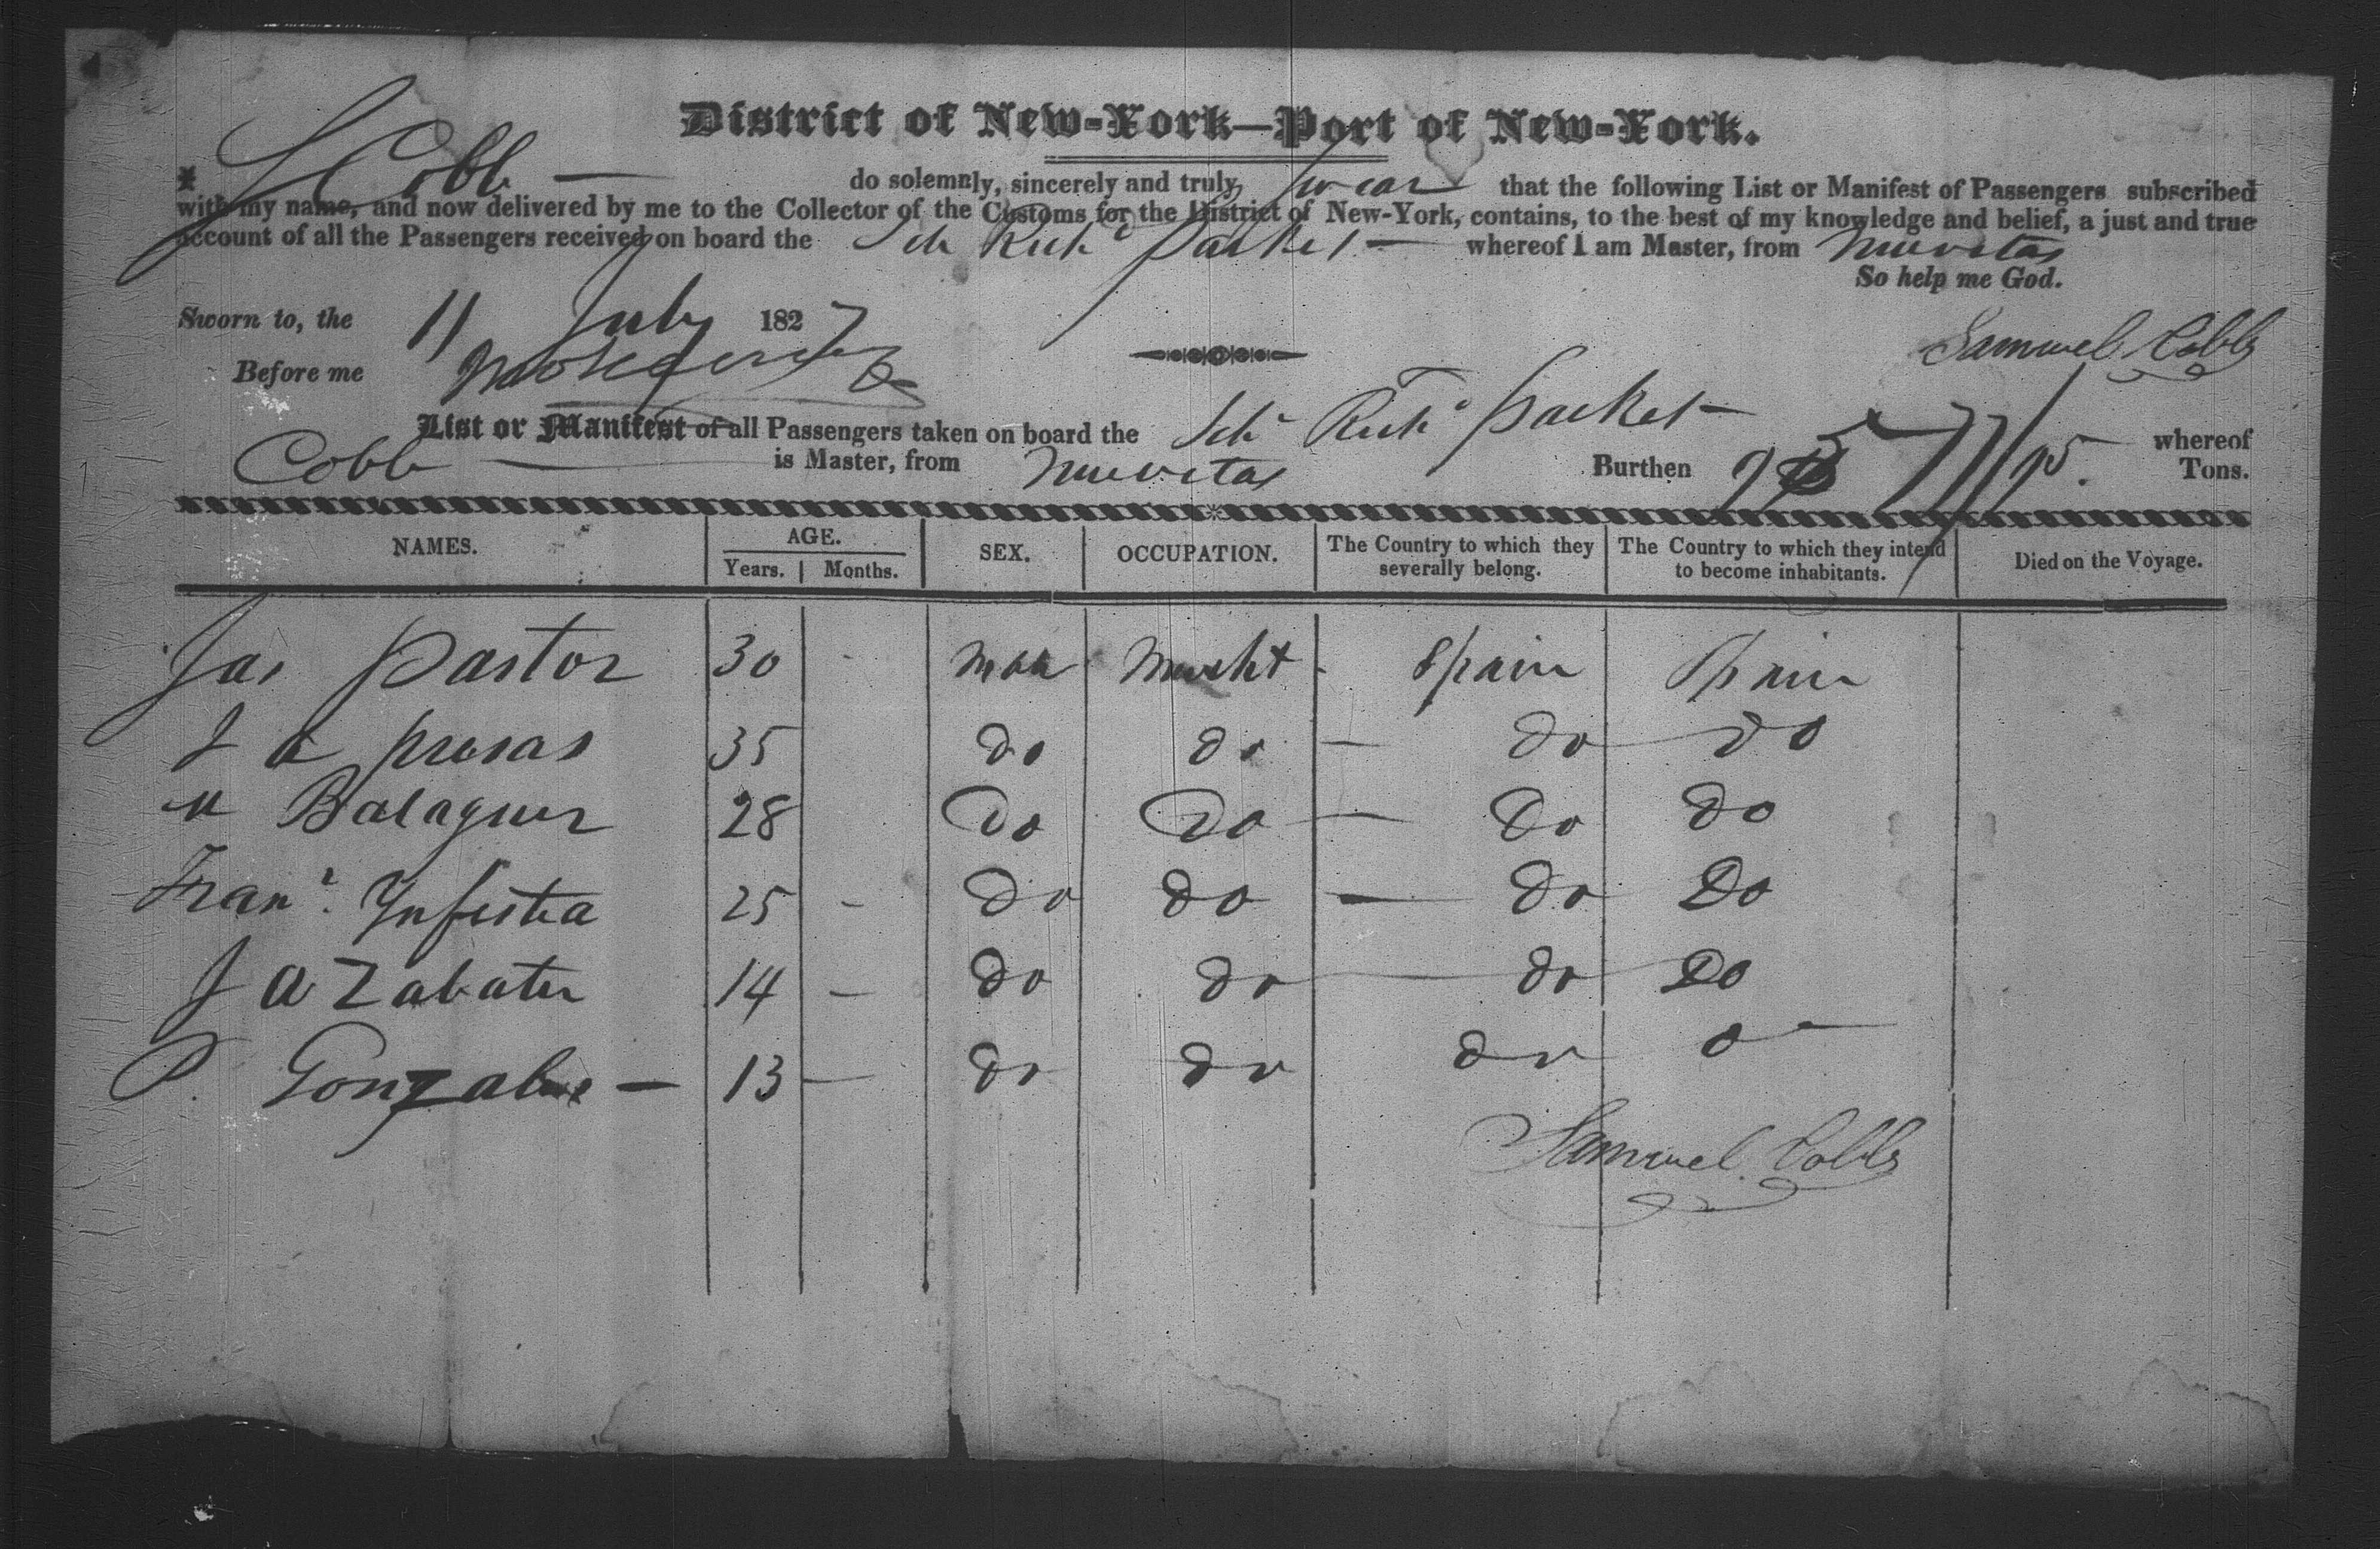 District of New-York—Port of New-York.
I S Cobb — do solemnly, sincerely and truly, swear that the following List or Manifest of Passengers subscribed
with my name, and now delivered by me to the Collector of the Customs for the District of New-York, contains, to the best of my knowledge and belief, a just and true
account of all the Passengers received on board the Sch Richd Packet — whereof I am Master, from Nuevitas
So help me God.
Sworn to, the 11 July 1827
Samuel Cobb
Before me
List or Manifest of all Passengers taken on board the Schr Richd Packet — whereof
Cobb — is Master, from Nuevitas Burthen 77/95 Tons.
NAMES. AGE. Years. Months. SEX. OCCUPATION. The Country to which they severally belong. The Country to which they intend to become inhabitants. Died on the Voyage.
Jas Pastor 30 - Male Mercht - Spain Spain
J A Presas 35 Do Do — Do Do
M Balaguer 28 Do Do — Do Do
Franco. Ynfesta 25 - Do Do — Do Do
J A Zabater 14 — Do Do — Do Do
P. Gonzales — 13 — Do Do Do
Samuel Cobb